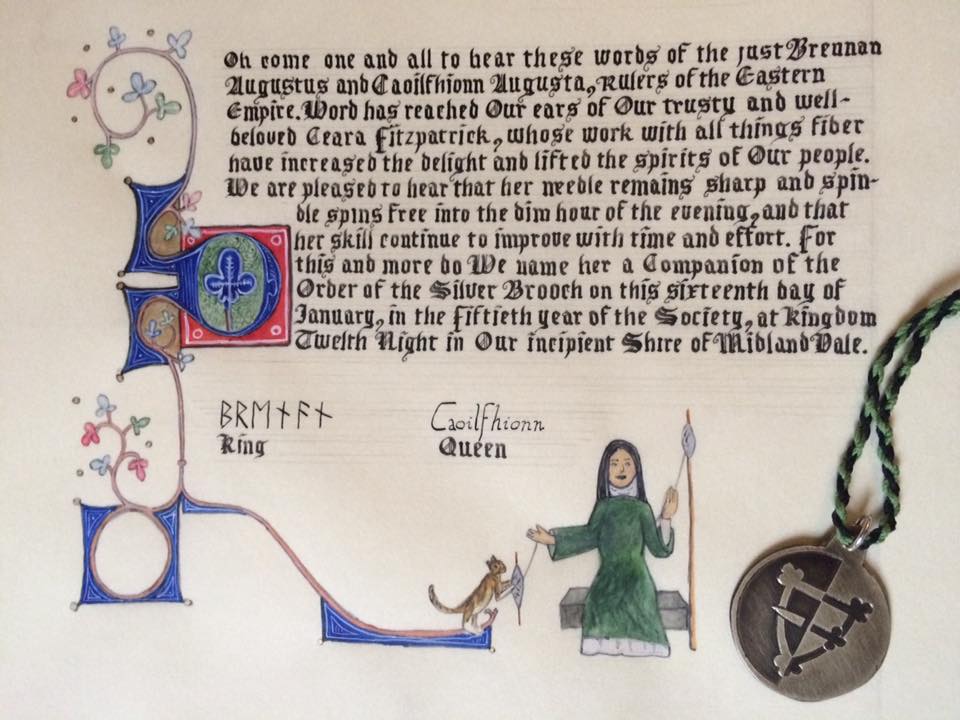 Oh come one and all to hear these words of the just Brennan
Augustus and Caoilfhionn Augusta, Rulers of the Eastern
Empire. Word has reached Our ears of Our trusty and well-
beloved Ceara Fitzpatrick, whose work with all things fiber
have increased the delight and lifted the spirits of Our people.
We are pleased to hear that her needle remains sharp and spin-
dle spins free into the dim hour of the evening, and that
her skill continue to improve with time and effort. For
this and more do We name her a Companion of the
Order of the Silver Brooch on this sixteenth day of
January, in the fiftieth year of the Society, at Kingdom
Twelth Night in Our incipient Shire of Midland Vale.
ᛒᚱᛖᚾᚨᚾ Caoilfhionn
King Queen